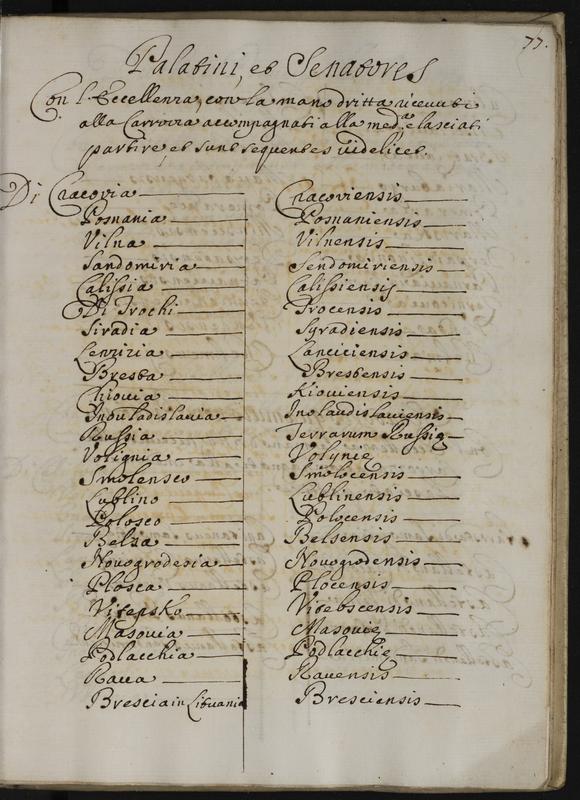 77.
Palatini, et Senatores
Con l'Eccellenza, con la mano dritta riceuuti
alla Carrozza accompagnati alla med.ª e lasciati
partire, et sunt sequentes uidelicet.
Di Cracovia Cracoviensis
Posnania Posnaniensis
Vilna Vilnensis
Sandomiria Sendomiriensis
Calissia Calissiensis
Di Trochi Trocensis
Siradia Syradiensis
Lenzizia Lanciciensis
Bresta Brestensis
Chiouia Kiouiensis
Inouladislauia Inoulaudislauiensis
Russia Terrarum Russię
Volignia Volynię
Smolensco Smolocensis
Lublino Lublinensis
Polosco Polocensis
Belza Belsensis
Novogrodesia Novogrodensis
Plosca Plocensis
Vitepsko Vitebscensis
Masouia Masouię
Podlacchia Podlacchię
Raua Rauensis
Brescia in Lituania Bresciensis